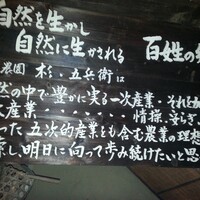 自然を生かし
自然に生かされる 百姓の
農園 杉・五兵衛は
然の中で豊かに実る一次産業・それを加
産業・・・・・・情操、安らぎ、
った五次的産業とも含む農業の理想
求し、明日に向って歩み続けたいと思